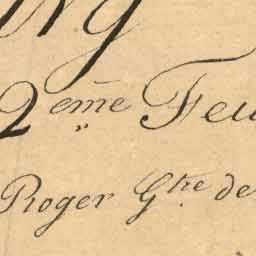 2eme Feu
Roger Gtre de